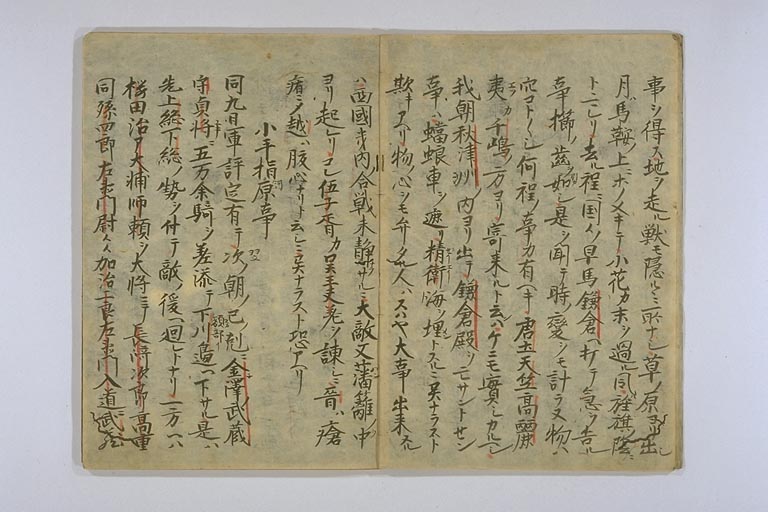 事ヲ得ス地ヲ走ル獣モ隠ルヽニ所ナシ草ノ原ヨリ出ル
月ハ馬鞍ノ上ニホノメキテ小花カホヲ過ル同ク旌旗ノ陰ニ
トニレリ去ル程ニ国々ノ早馬鎌倉ヘ打テ急ヲ告ル
事櫛ノ歯ノ如シ是ヲ聞テ時ノ變ヲモ計ラヌ物ハ
穴コト〱シ何程ノ事カ有ヘキ唐土天竺高麗
夷カ千嶋ノ方ヨリ寄来ルト云ハヽケニモ實シカルヘシ
我朝秋津洲ノ内ヨリ出テ鎌倉殿ヲ亡サントセン
事ハ蟷蜋車ヲ遮リ精衛海ヲ埋トスルニ異ナラスト
欺キアヘリ物ノ心ヲモ弁タル人ハスハヤ大事出来ヌル
ハ西國寺内合戦未静サルニ大敵又藩籬ノ中
ヨリ起レリコレ伍子胥カ呉王夫差ヲ諫シニ晋ハ瘡
痏ニシテ越ハ腹心ナリト云シニ異ナラスト恐アヘリ
小手指原事
同九日軍評定有テ次ノ朝ノ巳ノ刻ニ金澤武蔵
守貞将ニ五万余騎ヲ差添テ下川邉ヘ下サル是ハ
先上総下総ノ勢ヲ付テ敵ノ後ヘ回レトナリ一方ヘハ
桜田治ア大輔師頼ヲ大将ニテ長崎次郎高重
同孫四郎左衛門尉人々加治二良左衛門入道武蔵